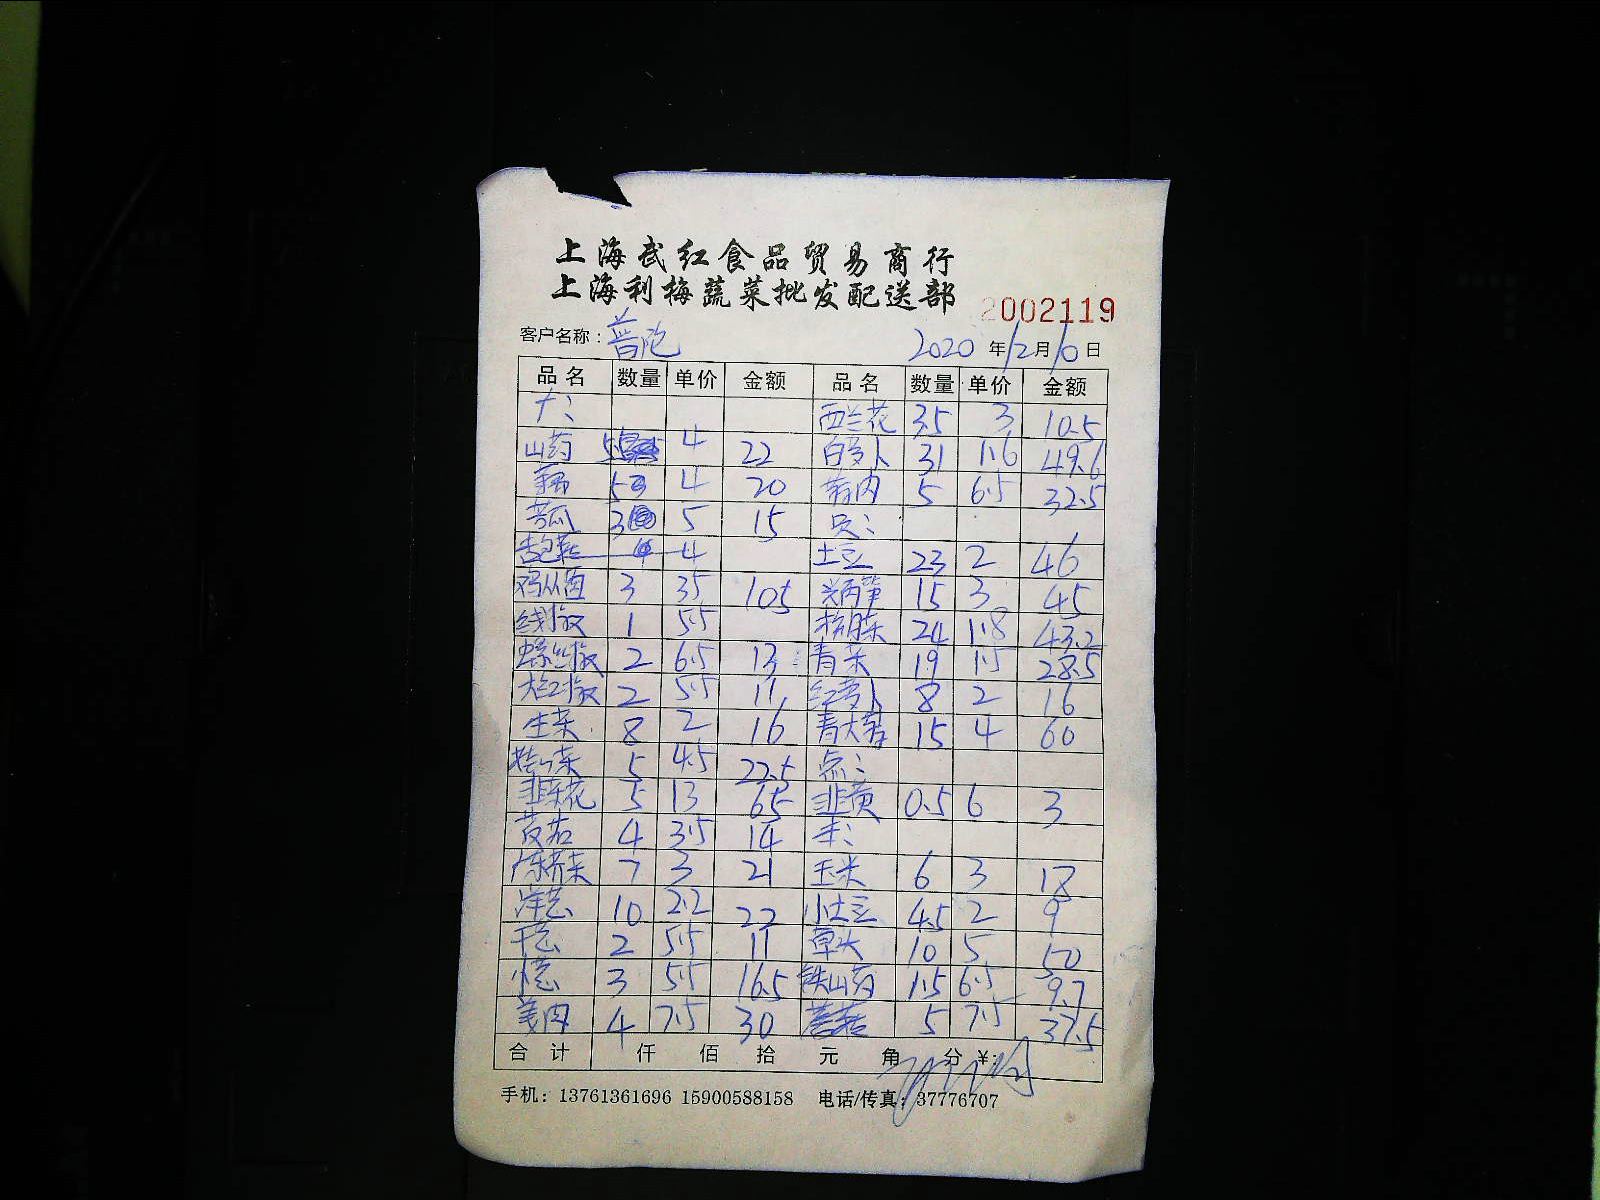 上海武红食品贸易商行
上海利梅蔬菜批发配送部
2002119
客户名称：普陀 2020 年 12 月 10 日
品名 数量 单价 金额 品名 数量 单价 金额
西兰花 3.5 3 10.5
山药 5.5 4 22 白萝卜 31 1.6 49.6
藕 5 4 20 5 6.5 32.5
苦瓜 3 5 15
4 4 土豆 23 2 46
鸡从菌 3 35 105 15 3 45
线椒 1 5.5 24 1.8 43.2
螺丝椒 2 6.5 13 青菜 19 1.5 28.5
大红椒 2 5.5 11 红萝卜 8 2 16
生菜 8 2 16 青大蒜 15 4 60
5 4.5 22.5 点：
韭菜花 5 13 65 韭黄 0.5 6 3
茨菇 4 3.5 14
7 3 21 玉米 6 3 18
洋葱 10 2.2 22 小土豆 4.5 2 9
干葱 2 5.5 11 草头 10 5 50
小葱 3 5.5 16.5 铁山药 1.5 6.5 9.7
姜肉 4 7.5 30 蘑菇 5 7.5 37.5
合计 仟 佰 拾 元 角 分 ¥:
手机：13761361696 15900588158 电话/传真：37776707